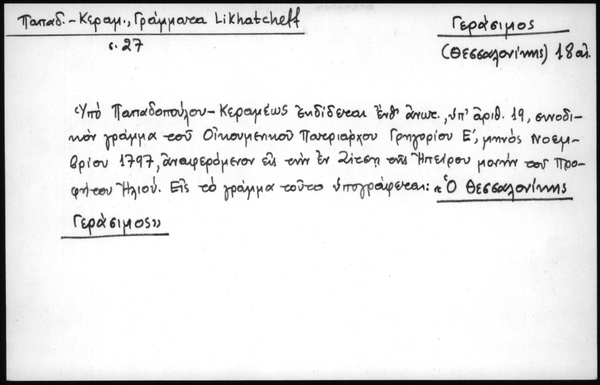 Παπαδ.-Κεραμ., Γράμματα Likhatcheff
Γεράσιμος
σ. 27
(Θεσσαλονίκης) 18 αἰ.
Ὑπὸ Παπαδοπούλου-Κεραμέως ἐκδίδεται ἔνθ' ἀνωτ., ὑπ' ἀριθ. 19, συνοδι-
κὸν γράμμα τοῦ Οἰκουμενικοῦ Πατριάρχου Γρηγορίου Ε', μηνὸς Νοεμ-
βρίου 1797, ἀναφερόμενον εἰς τὴν ἐν Ζίτσῃ τῆς Ἠπείρου μονὴν τοῦ Προ-
φήτου Ἠλιού. Εἰς τὸ γράμμα τοῦτο ὑπογράφεται: «Ὁ Θεσσαλονίκης
Γεράσιμος»